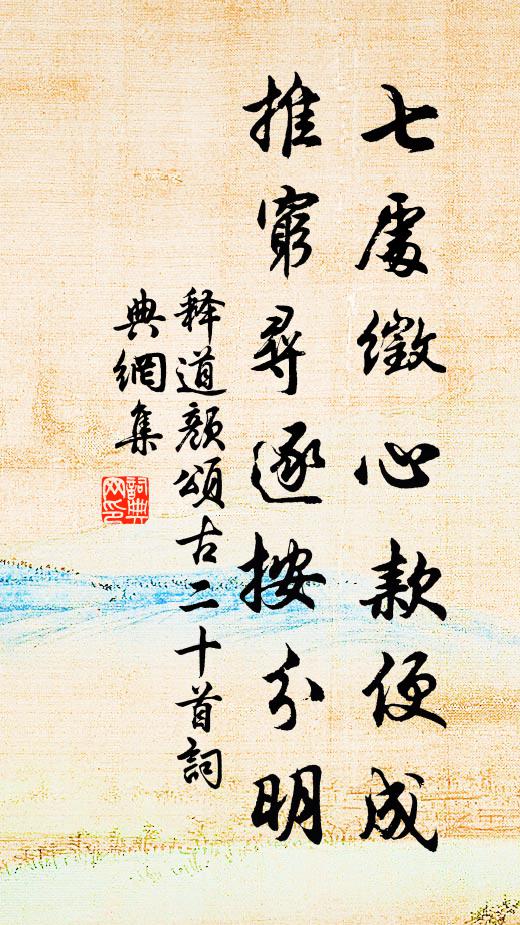 七處徵心款便成
推窮尋逐按分明
释道顏頌古二十首詞
典網集
詞典
网印